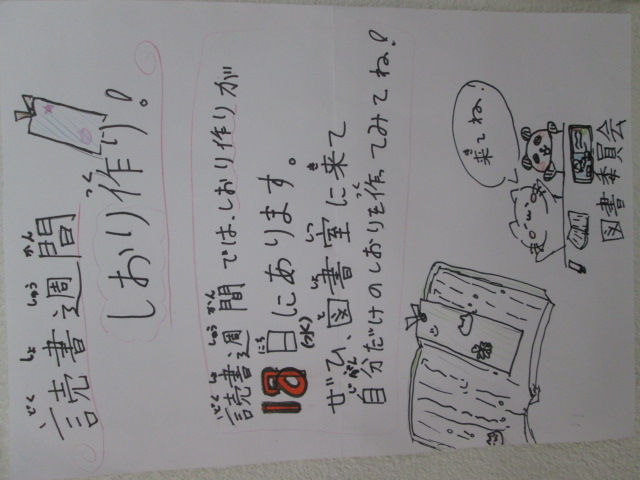 読書週間
しおり作り!
読書週間では、しおり作りが
18日(水)にあります。
ぜひ、図書室に来て
自分だけのしおりを作ってみてね!
来てね!
図書委員会